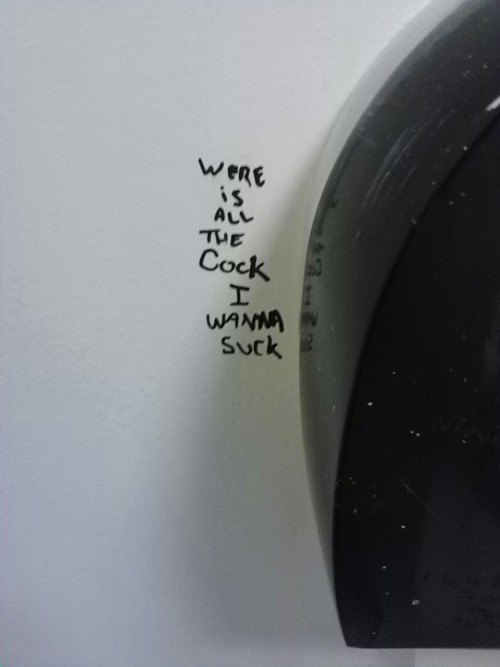 WERE
is
ALL
THE
Cock
I
WANNA
SUCK